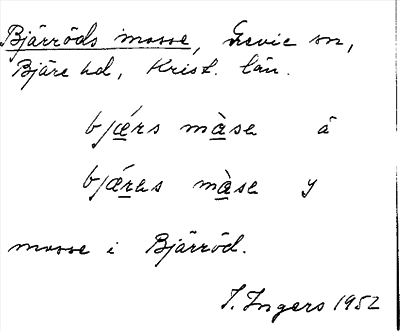 Bjärröds mosse, Grevie sn,
Bjäre hd, Krist. län.
bjǽrs màse å
bjǽres màse y
mosse i Bjärröd.
I. Ingers 1952